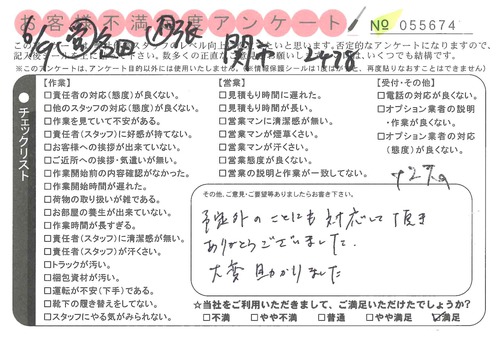 お客様不満足度アンケート
№ 055674
6/9
2498
※このアンケートは、アンケート目的以外には使用いたしません。
チェックリスト
【作業】
□責任者の対応(態度)が良くない。
□他のスタッフの対応(態度)が良くない。
□作業を見ていて不安がある。
□責任者(スタッフ)に好感が持てない。
□お客様への挨拶が出来ていない。
□ご近所への挨拶・気遣いが無い。
□作業開始前の内容確認がなかった。
□作業開始時間が遅れた。
□荷物の取り扱いが雑である。
□お部屋の養生が出来ていない。
□作業時間が長すぎる。
□責任者(スタッフ)に清潔感が無い。
□責任者(スタッフ)が汗くさい。
□トラックが汚い。
□梱包資材が汚い。
□運転が不安(下手)である。
□靴下の履き替えをしてない。
□スタッフにやる気がみられない。
【営業】
□見積もり時間に遅れた。
□見積もり時間が長い。
□営業マンに清潔感が無い。
□営業マンが煙草くさい。
□営業マンが汗くさい。
□営業態度が良くない。
□営業の説明と作業が一致してない。
【受付・その他】
□電話の対応が良くない。
□オプション業者の説明
・作業が良くない。
□オプション業者の対応
(態度)が良くない。
その他、ご意見・ご要望等ありましたらお書き下さい。
予定外のことにも対応して頂き
ありがとうございました。
大変助かりました
☆当社をご利用いただきまして、ご満足いただけたでしょうか?
□不満 □やや不満 □普通 □やや満足 ☑満足